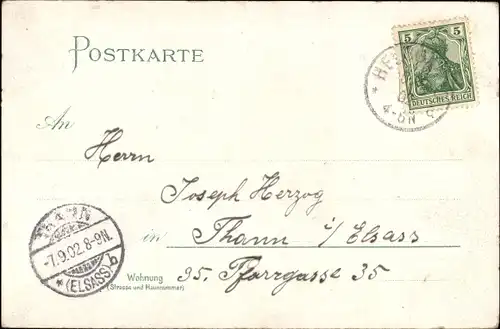 POSTKARTE
5 5
DEUTSCHES REICH
4-5N
An
Herrn
Joseph Herzog
in Thann i/Elsass
THANN
-7.9.02.8-9N.
*(ELSASS) b
Wohnung
(Strasse und Hausnummer)
35. Pfarrgasse 35